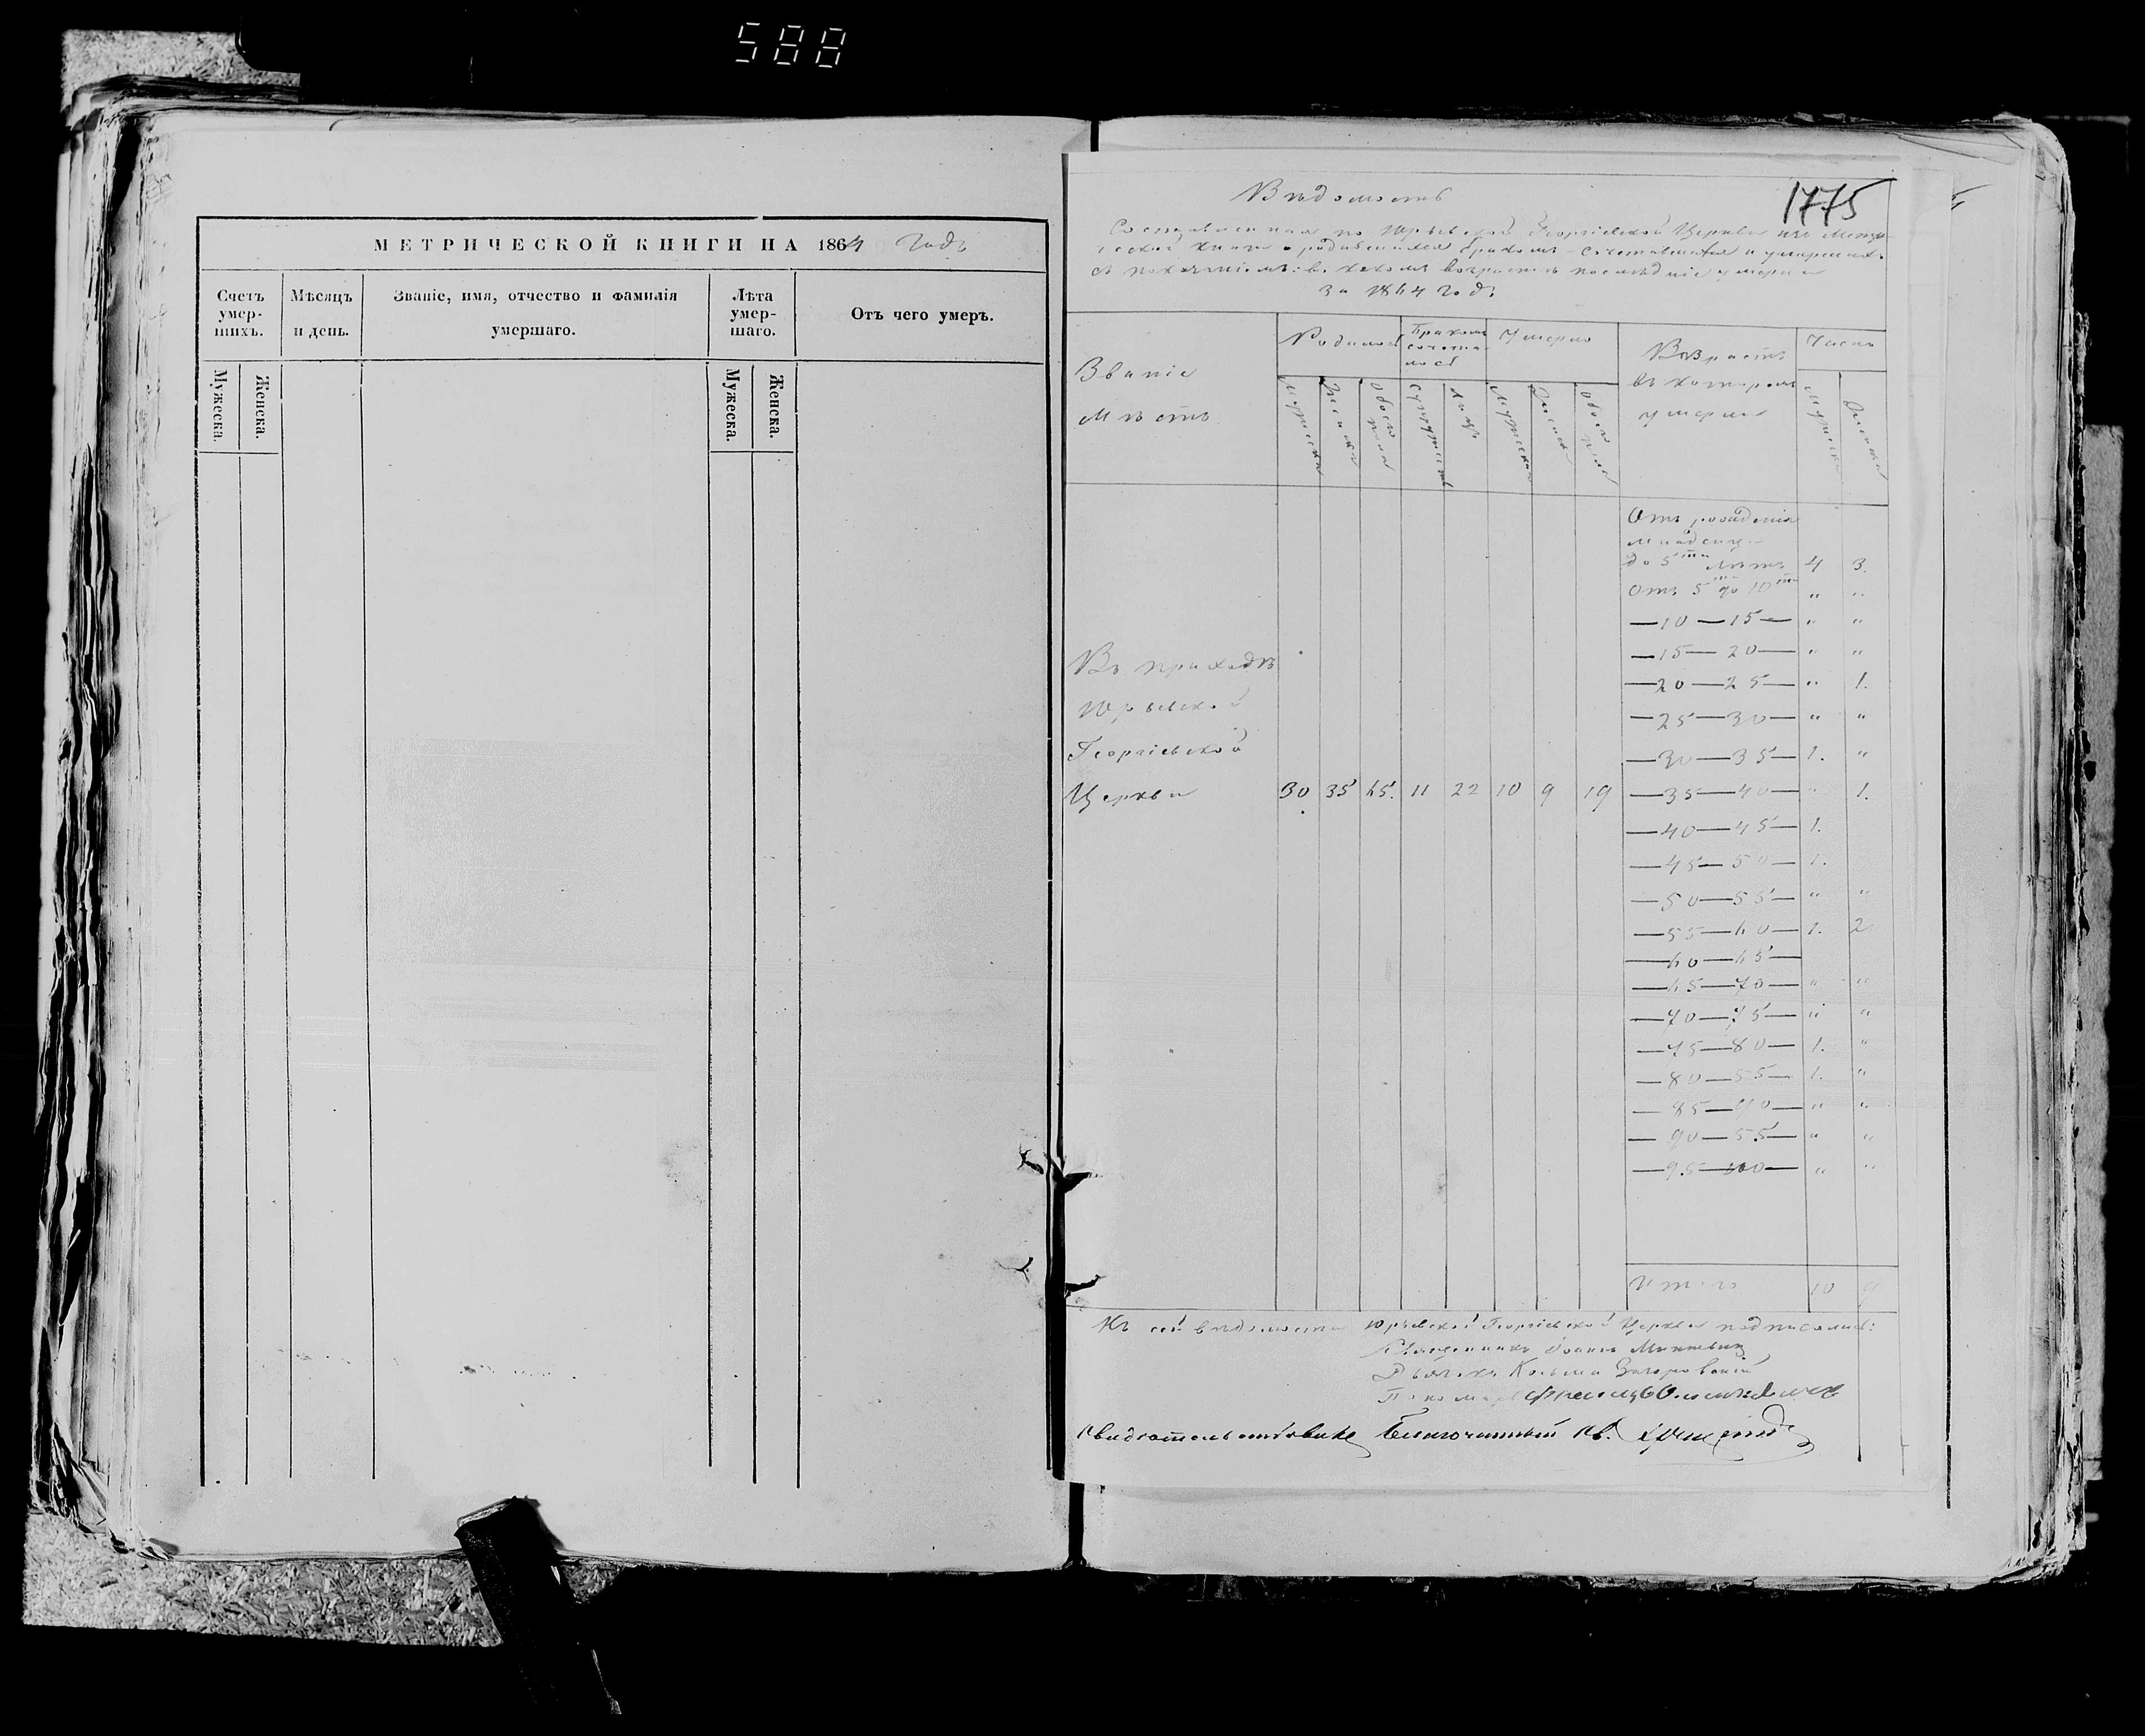 588
МЕТРИЧЕСКОЙ КНИГИ НА 1864 Годъ
Счетъ умер- шихъ.
Мѣсяцъ и день.
Званіе, имя, отчество и фамилія умершаго.
Лѣта умер- шаго.
Отъ чего умеръ.
Мужеска.
Женска.
Мужеска.
Женска.
1775
Вѣдомость
Составленная по Юрьевской Георгіевской Церкви изъ Метри-
ческой книги о родившихся бракомъ-сочетавшихся и умершихъ
съ показаніемъ: въ какомъ возрастѣ послѣдніе умерли
за 1864 Годъ
Званіе
Мѣстъ
Родилось
Бракомъ
сочета-
лось
Умерло
Возрастъ
въ которомъ
умерли
Число
Мужеска
Женска
Обоего пола
Супружествъ
Лицъ
Мужеска
Женска
Обоего пола
Мужеска
Женска
Отъ рожденія
младенца
до 5ти лѣтъ 4 3.
Отъ 5 до 10ти " "
—10—15— " "
—15—20— " "
—20—25— " 1.
—25—30— " "
—30—35— 1. "
—35—40— " 1.
—40—45— 1.
—45—50— 1.
—50—55— " "
—55—60— 1. 2
—60—65—
—65—70— " "
—70—75— " "
—75—80— 1. "
—80—55— 1. "
—85—90— " "
—90—55— " "
—95—100— " "
Въ приходѣ
Юрьевской
Георгіевской
Церкви 30 35 65. 11 22 10 9 19
Итого 10 9
Къ сей вѣдомости Юрьевской Георгіевской Церкви подписались:
Священникъ Іоаннъ
Дьячекъ Козьма
Пономарь
Свидѣтельствовалъ Благочинный Св.